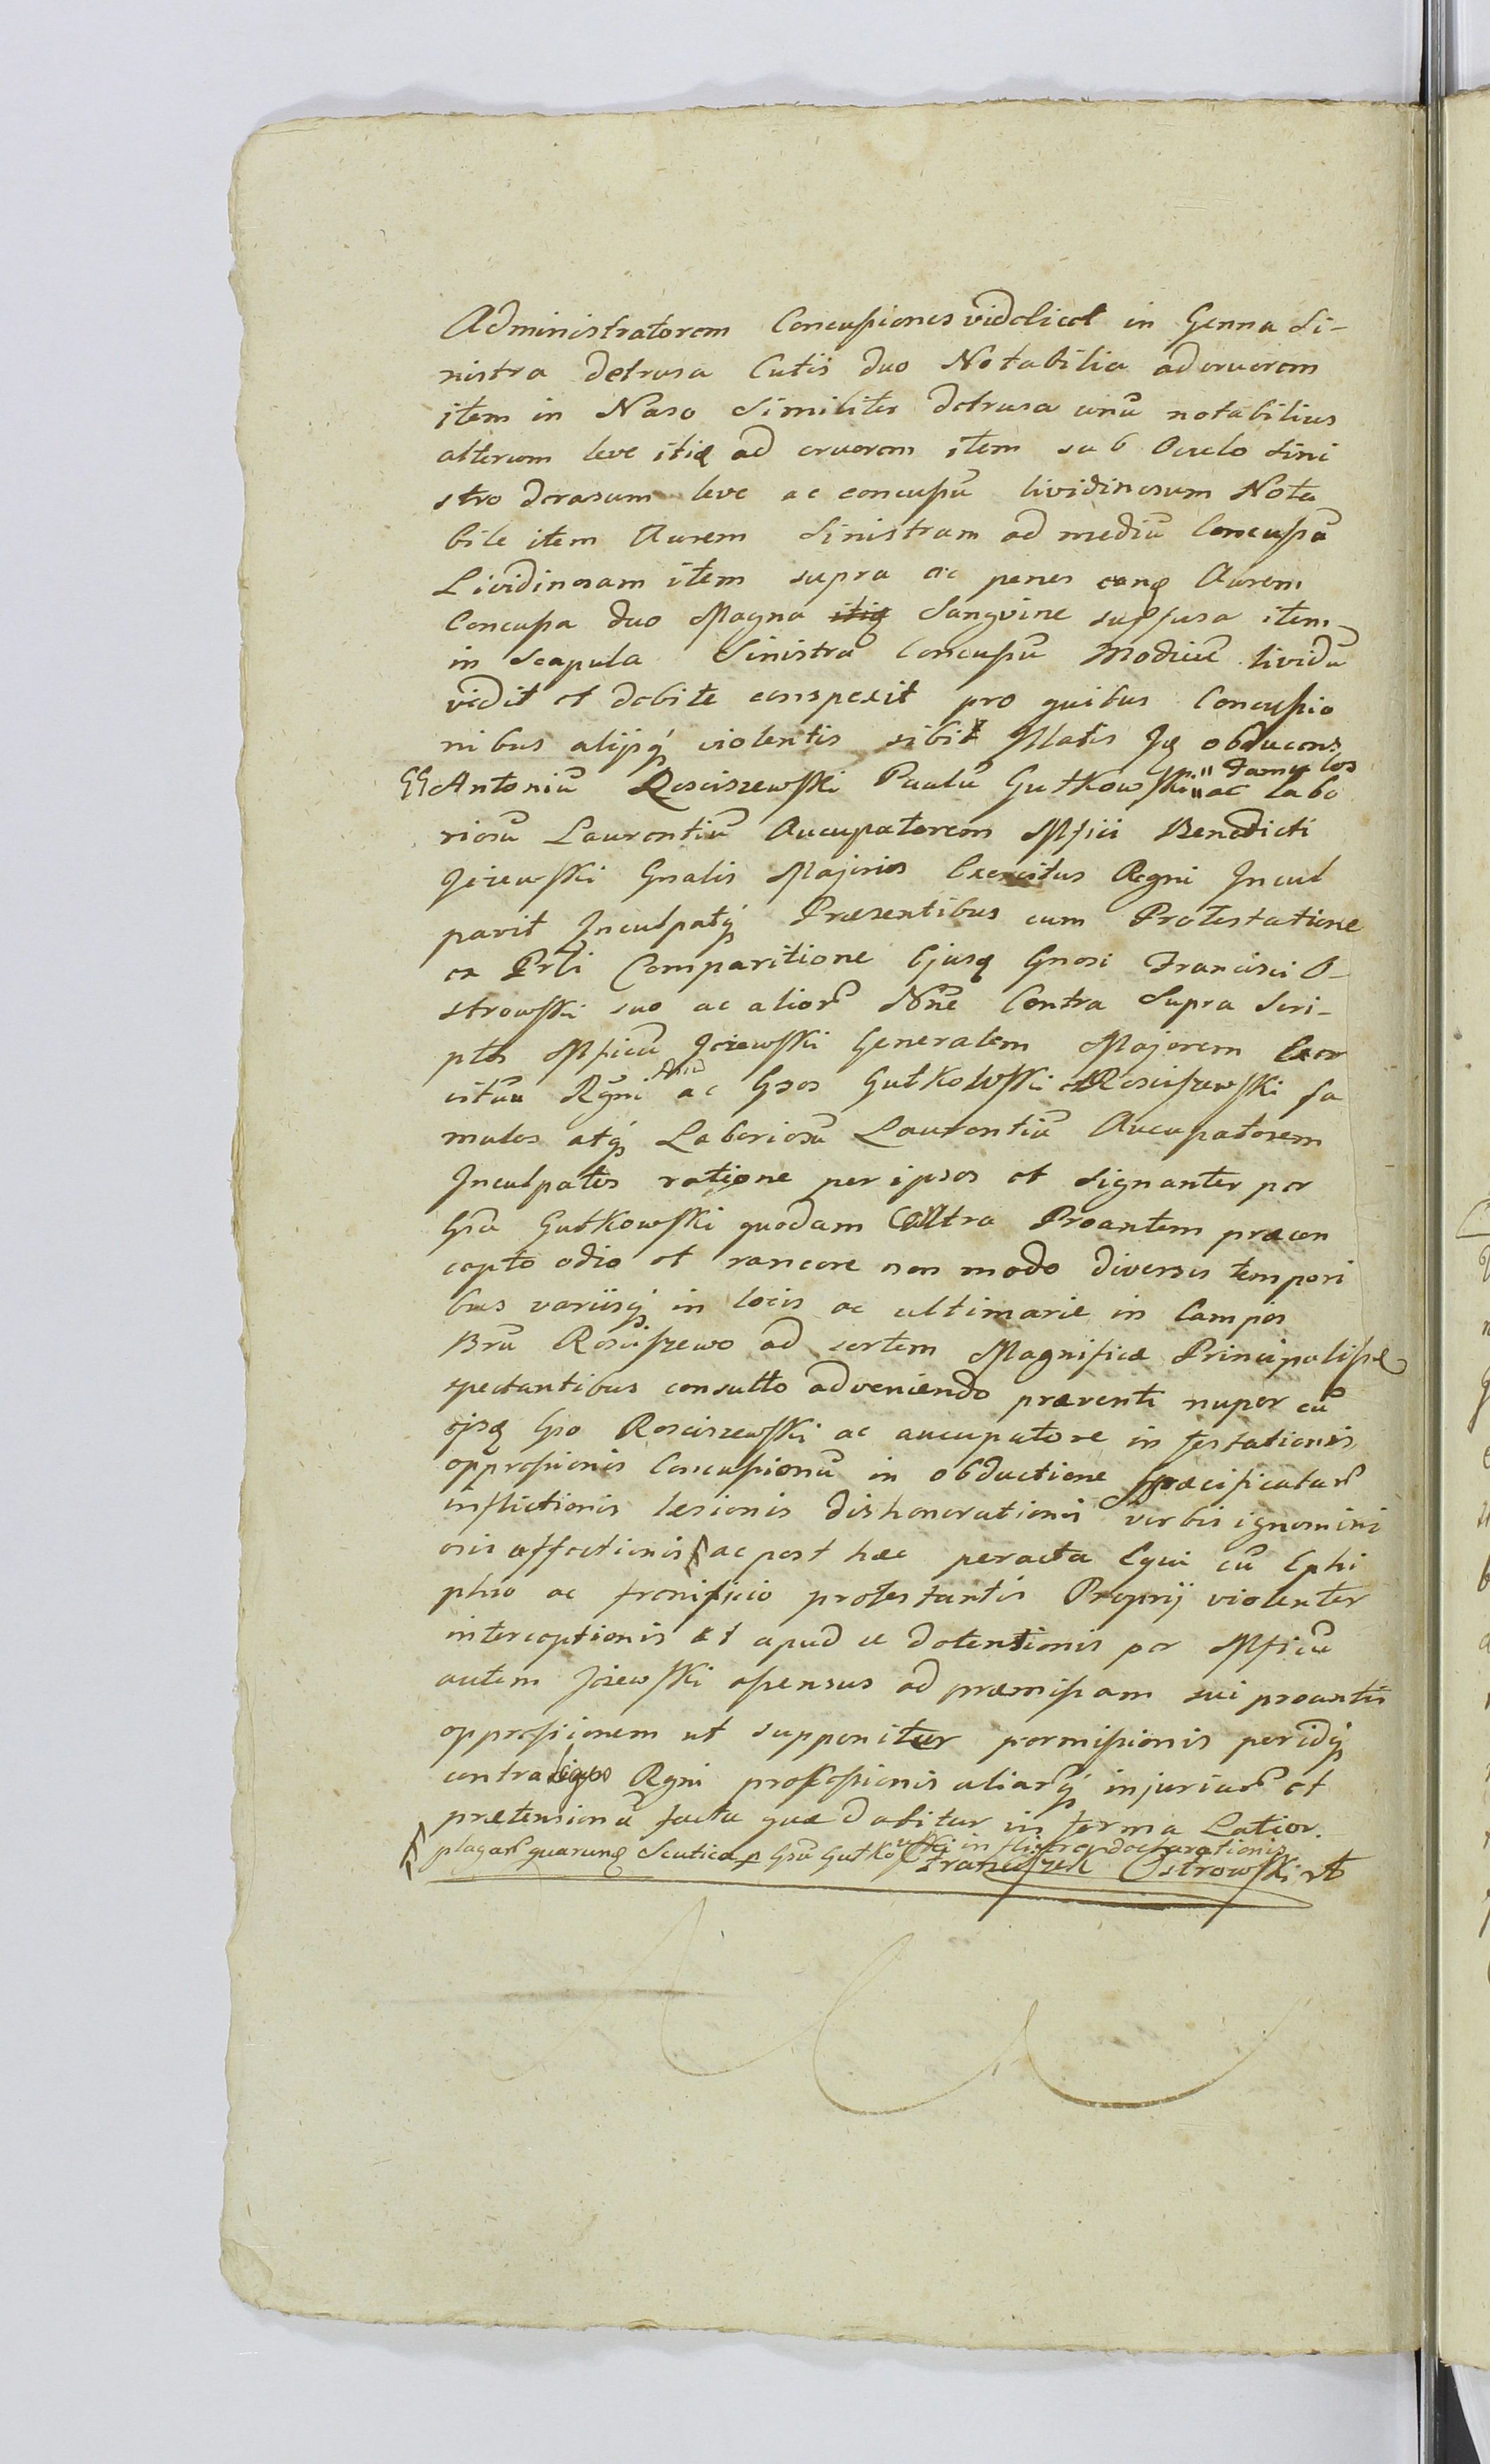 Administratorem Concussiones videlicet in Genna Si-
nistra detrusa Cutis duo Notabilia ad cruorem
item in Naso Similiter detrusa unū notabilius
alterum leve itiq ad cruorem item sub Oculo Sini
stro derasum leve ac concussū lividinosum Nota
bile item Aurem Sinistram ad mediū Concussā
Lividinosam item supra ac penes eanq Aurem
Concussa duo Magna itiq Sangvine suffusa item
in Scapula Sinistra Concussū Modicū lividū
vidit et debite conspexit pro quibus Concussio
nibus alijsq́ violentis sibi Illatis Iq obducens
GG Antoniū Rosciszewski Paulū Gutkowski " Famulos
" ac Labo
riosū Laurentiū Aucupatorem Mfici Benedicti
Jezewski Gnalis Majoris Exercitus Regni Incul
pavit Inculpatq́ Præsentibus cum Protestatione
ex Prti Comparitione Ejusq Gnosi Francisci O-
strowski suo ac alior̃ Nñe Contra Supra Scri-
ptos Mficū Jezewski Generalem Majorem Exer
citūu Rgni ac Gsos Gutkowski Rosciszewski fa
mulos atq́ Laboriosū Laurentiū Aucupatorem
Inculpatos ratione per ipsos et Signanter per
Gsū Gutkowski quodam Contra Proantem præcon
cepto odio et rancore non modo diversis tempori
bus variisq́ in locis ac ultimarie in Campis
Bru Rosciszewo ad sortem Magnificæ Principalissæ
spectantibus consulto adveniendo præventi nuper cū
ejsq Gso Rosciszewski ac aucupatore in festationis
oppressionis Concussionū in obductione Specificatar̃
inflictionis læsionis dishonorationis verbis ignomini
osis affectionis ac post hæc peracta Equi cū Ephi
phio ac frenificio protestantis Proprij violenter
interceptionis et apud se detentionis per Mficū
autem Jezewski assensus ad præmissam sui proantis
oppressionem ut supponitur permissionis peridq́
contra leges Rgni processionis aliar̃q́ injuriar̃ et
prætensionū facta quæ dabitur in forma Latior.
plagar̃ quarunq Scutica p Gsū Gutkowski inflictar̃ declarationis
Franciszek Ostrowski